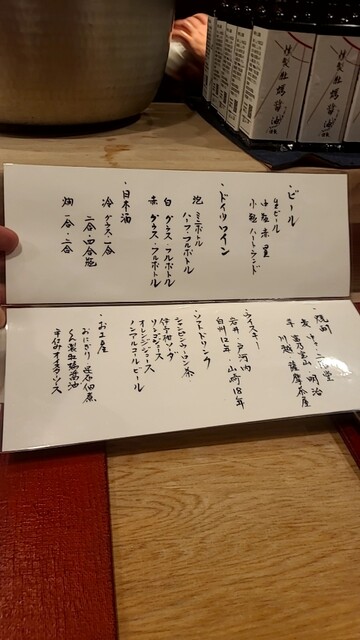 ・ビール
生ビール
中瓶 赤星
小瓶 ハートランド
・ドイツワイン
泡 ミニボトル
ハーフ・フルボトル
白 グラス・フルボトル
赤 グラス・フルボトル
・日本酒
冷 グラス・一合
二合・四合瓶
燗 一合・二合
・焼酎
麦 中々 二階堂
芋 富乃宝山 明治
川越 薩摩茶屋
・ウイスキー
岩井 戸河内
白州12年・山崎18年
・ソフトドリンク
ジャスミン・ウーロン茶
ソーダ
リンゴジュース
オレンジジュース
ノンアルコールビール
・お土産
おにぎり
くん製牡蠣醤油
オイスターソース
燻製牡蠣醤油